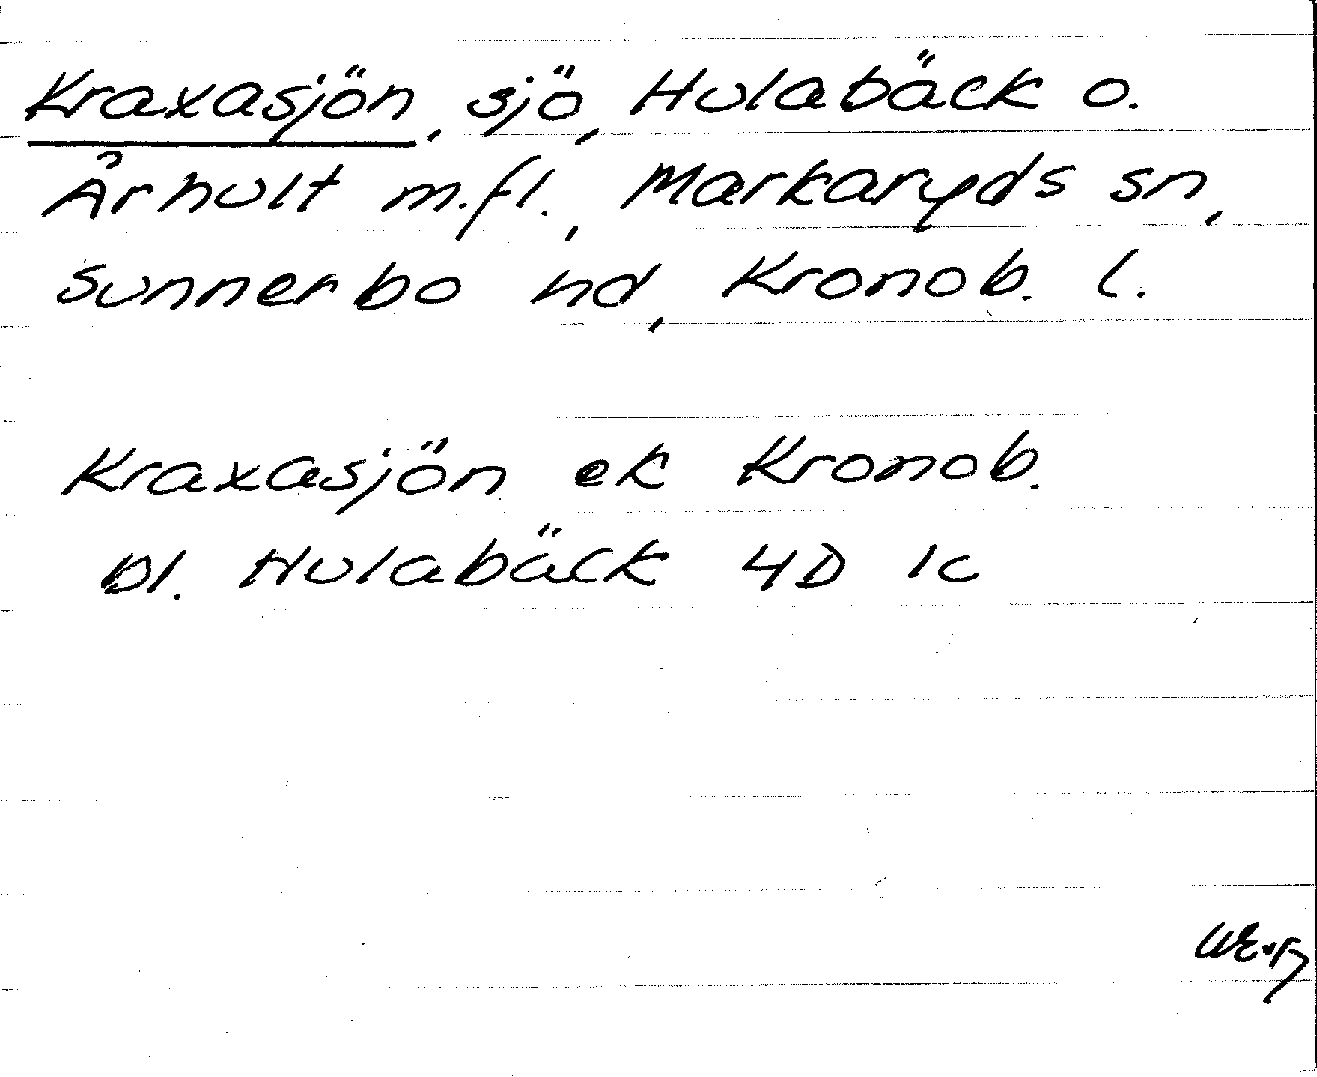 Kraxasjön, sjö, Hulabäck o.
Århult m.fl., Markaryds sn,
Sunnerbo hd, Kronob. l.
Kraxasjön ek Kronob.
bl. Hulabäck 4D 1c